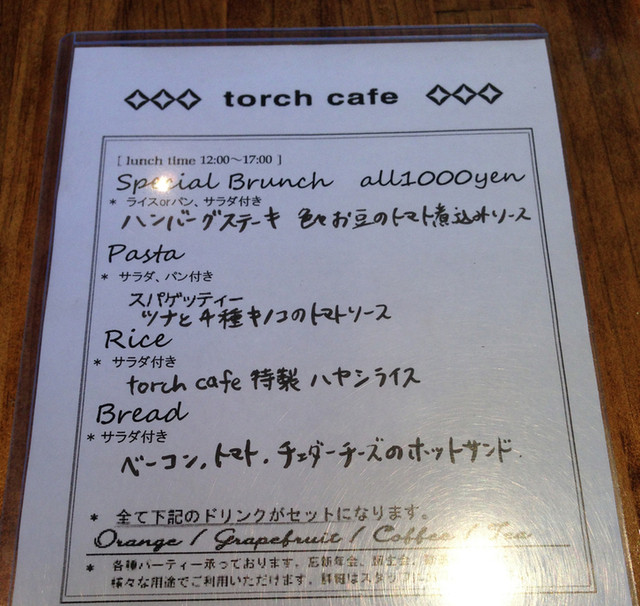 torch cafe
[ lunch time 12:00～17:00 ]
Special Brunch all1000yen
* ライスorパン、サラダ付き
ハンバーグステーキ 色々お豆のトマト煮込みソース
Pasta
* サラダ、パン付き
スパゲッティー
ツナと4種キノコのトマトソース
Rice
* サラダ付き
torch cafe 特製 ハヤシライス
Bread
* サラダ付き
ベーコン,トマト,チェダーチーズのホットサンド.
* 全て下記のドリンクがセットになります。
Orange / Grapefruit / Coffee / Tea
* 各種パーティー承っております。忘新年会、
様々な用途でご利用いただけます。詳細はスタッフに